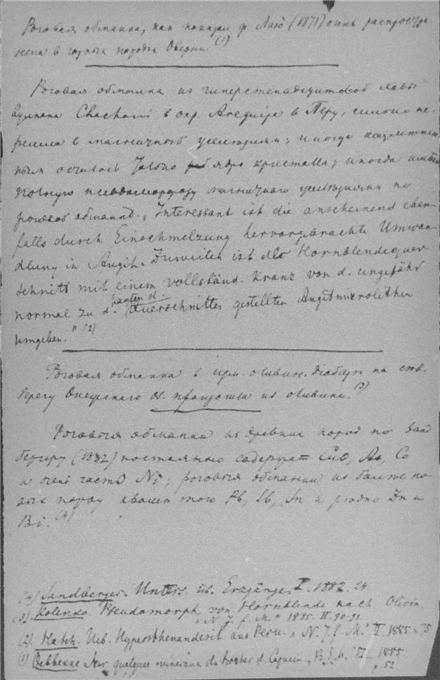 Роговая обманка, как показал ф. Лазо (1871) очень распростра-
нена в горных породах Оверни. (1)
Роговая обманка из гиперстенандезитовой лавы
вулкана Chachani в окр. Arequipa в Перу, сильно пе-
решла в магнитный железняк; иногда
осталось только ядро кристалла; иногда
полную псевдоморфозу магнитного железняка по
роговой обманке. „Interessant ist die anscheinend eben-
falls durch Einschmelzung hervorgebrachte Umwan-
dlung in Augit. Zuweilen ist der Hornblendequer-
schnitt mit einem vollständ. Kranz von d. ungefähr
normal zu d. Querschnittes gestellten Augitmikrolithen
umgeben." (2)
Роговая обманка в оливин. диабазе на сев.
берегу Онежского оз. произошла из оливина. (3)
Роговыя обманки из древних пород по Занд
бергеру (1882) постоянно содержат Cu, As, Co
и Ni; роговыя обманки из более мо-
лодых пород кроме того Pb, Sb, Sn и редко Zn и
Bi. (4)
(4) Sandberger. Unters. üb. Erzgänge I. 1882. 24.
(3) Kolenko. Pseudomorph. von Hornblende nach Olivin.
„N. J. f. M." 1885. II. 90.91.
(2) Hatch. Ueb. Hypersthenandesit aus Peru. „N. J. f. M." II. 1885. 75
(1) Sur quelques minéraux des roches d. 1885.
p. 52